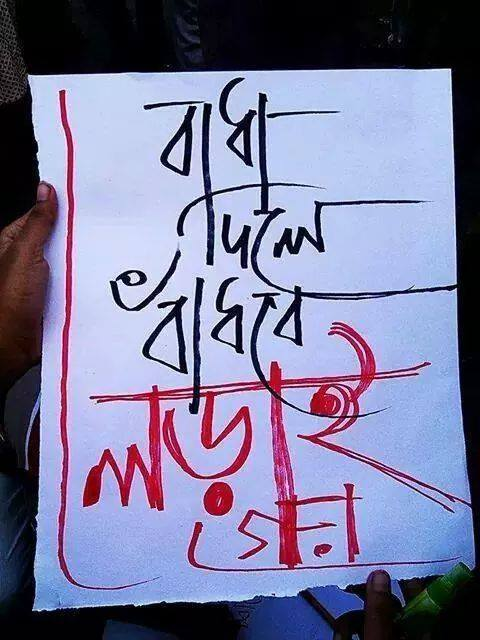 বাধা
দিলে
বাঁধবে
লড়াই